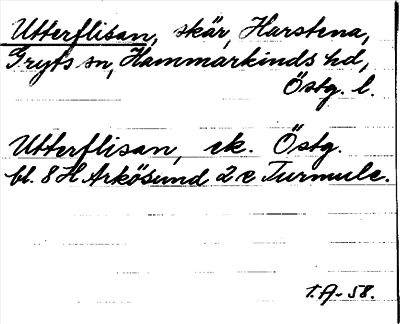 Utterflisan, skär, Harstena,
Gryts sn, Hammarkinds hd,
Östg. l.
Utterflisan, ek. Östg.
bl. 8 H Arkösund 2 e Turmule.
T.A-58.